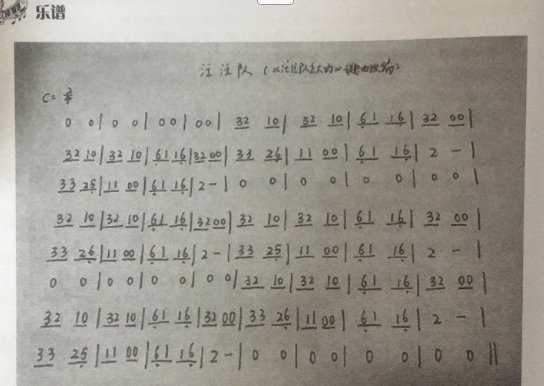 乐谱
汪汪队(《汪汪队立大功》歌曲改编)
C= 2/4
0 0 | 0 0 | 0 0 | 0 0 | 32 10 | 32 10 | 61 16 | 32 00 |
32 10 | 32 10 | 61 16 | 32 00 | 33 26 | 11 00 | 61 16 | 2 - |
33 25 | 11 00 | 61 16 | 2 - | 0 0 | 0 0 | 0 0 | 0 0 |
32 10 | 32 10 | 61 16 | 32 00 | 32 10 | 32 10 | 61 16 | 32 00 |
33 26 | 11 00 | 61 16 | 2 - | 33 25 | 11 00 | 61 16 | 2 - |
0 0 | 0 0 | 0 0 | 0 0 | 32 10 | 32 10 | 61 16 | 32 00 |
32 10 | 32 10 | 61 16 | 32 00 | 33 26 | 11 00 | 61 16 | 2 - |
33 25 | 11 00 | 61 16 | 2 - | 0 0 | 0 0 | 0 0 | 0 0 ||